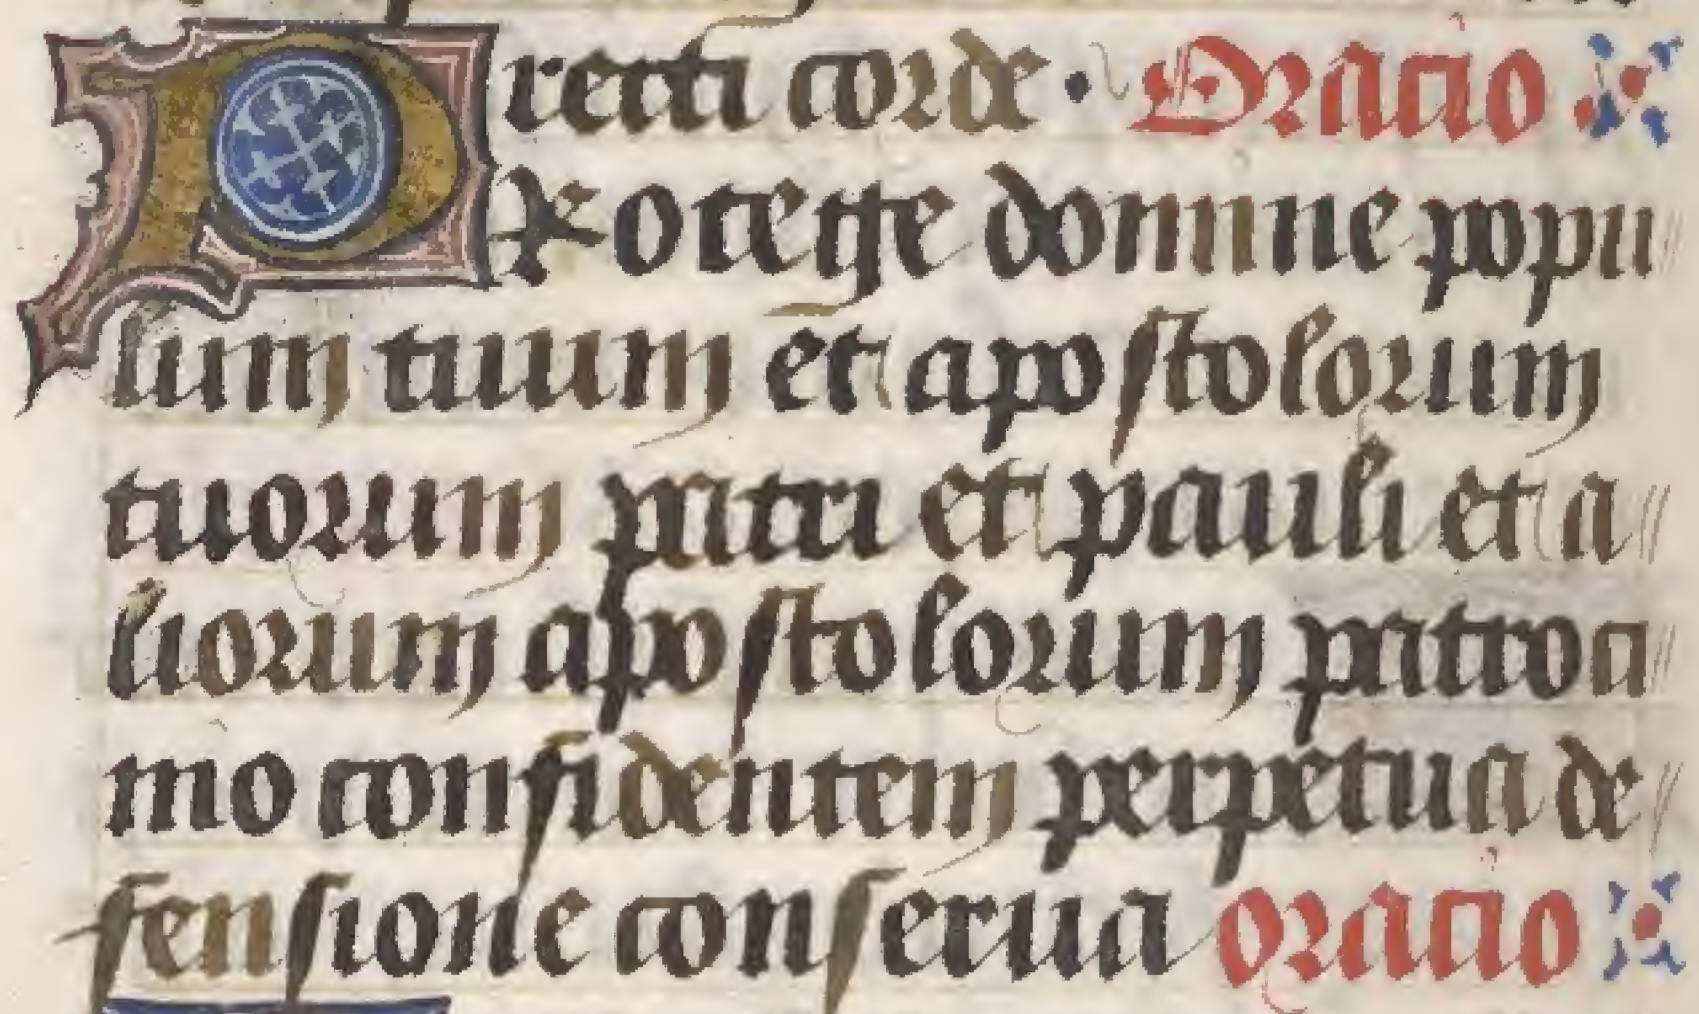 recti corde · Oracio
Protege domine popu
lum tuum et apostolorum
tuorum petri et pauli et a
liorum apostolorum patroci
nio confidentem perpetua de
fensione conserua oracio